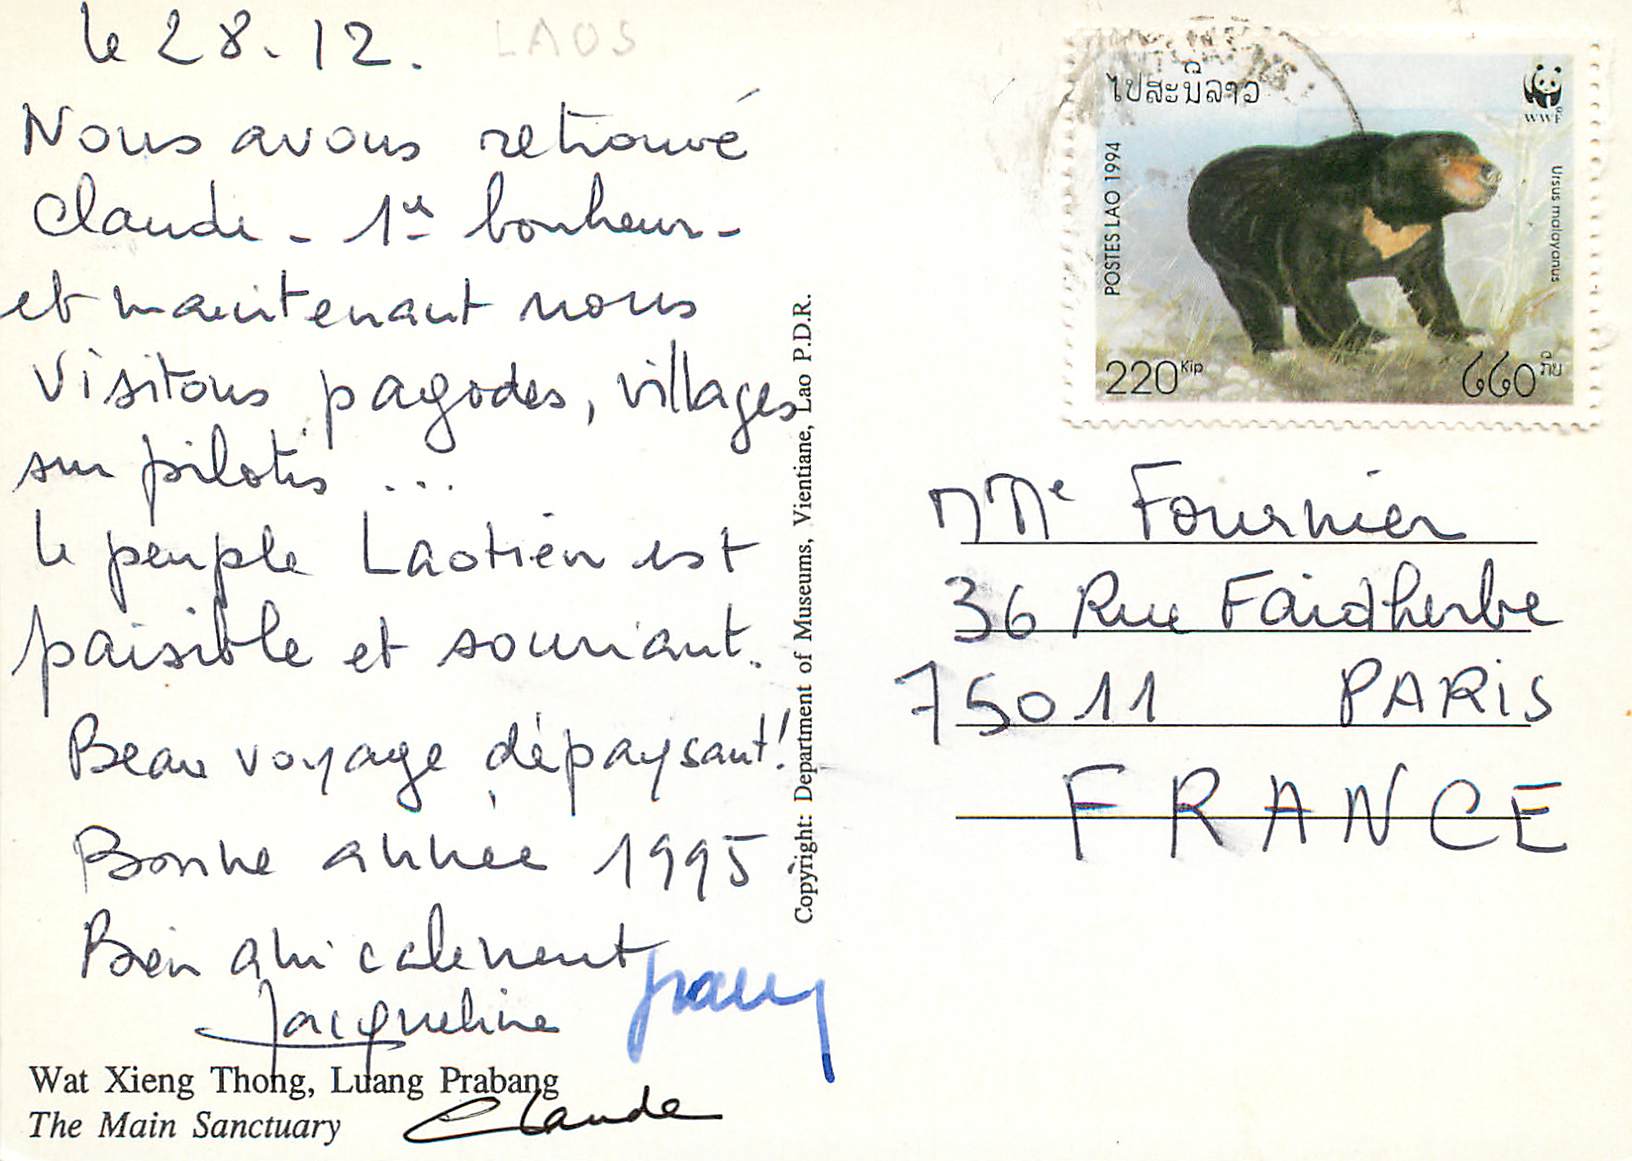 le 28.12.
LAOS
Nous avons retrouvé
Claude - 1er bonheur -
et maintenant nous
visitons pagodes, villages
sur pilotis ...
le peuple Laotien est
paisible et souriant.
Beau voyage dépaysant!
Bonne année 1995
Bien amicalement
Jacqueline
Claude
Wat Xieng Thong, Luang Prabang
The Main Sanctuary
Copyright: Department of Museums, Vientiane, Lao P.D.R.
ໄປສະນີລາວ
WWF
POSTES LAO 1994
Ursus malayanus
220 Kip
໒໒໐ ກີບ
MMe Fournier
36 Rue Faidherbe
75011 PARIS
FRANCE